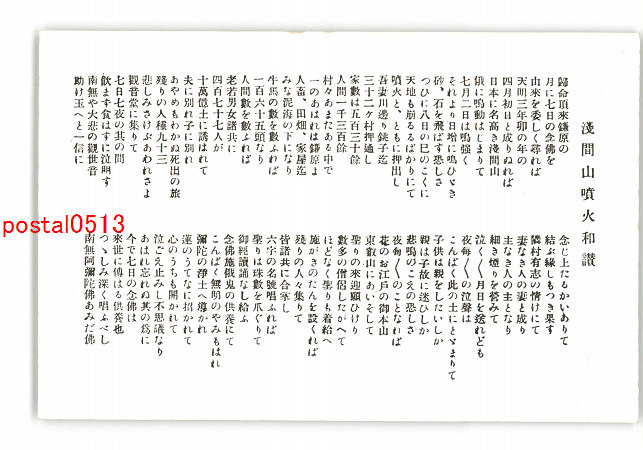 淺間山噴火和讃
歸命頂來鎌原の
月に七日の念佛を
由來を委しく尋れば
天明三年卯の年の
四月初日と成りぬれば
日本に名高き淺間山
俄に鳴動はじまりて
七月二日は鳴強く
それより日增に鳴ひゞき
砂、石を飛ばす恐しさ
つひに八日の巳のこくに
天地も崩るるばかりにて
噴火と、ともに押出し
吾妻川邊り銚子迄
三十二ケ村押通し
家數は五百三十餘
人間一千三百餘
村々あまたある中で
一のあはれは鎌原よ
人畜、田畑、家屋迄
みな泥海の下になり
牛馬の數を數ふれば
一百六十五頭なり
人間數を數ふれば
老若男女諸共に
四百七十七人が
十萬億土に誘はれて
夫に別れ子に別れ
あやめもわかぬ死出の旅
殘りの人種九十三
悲しみさけぶあわれさよ
觀音堂に集りて
七日七夜の其の間
飮まず食はすに泣明す
南無や大悲の觀世音
助け玉へと一信に
念じ上たるかいありて
結ぶ緣しもつき果す
隣村有志の情けにて
妻なき人の妻と成り
主なき人の主となり
細き烟りを營みて
泣く〳〵月日を送れども
夜每〳〵の泣聲は
こんぱく此の土にとゞまりて
子供は親をしたいしか
親は子故に迷ひしか
悲鳴のこえの恐しさ
夜每〳〵のことなれば
花のお江戸の御本山
東叡山にあいそして
聖りの來迎願ひけり
數多の僧侶したがへて
ほどなく聖りも着給へ
施がきのだんを設くれば
殘りの人々集りて
皆諸共に合掌し
六字の名號唱ふれば
聖りは珠數を爪ぐりて
御經讀誦なし給ふ
念佛施餓鬼の供養にて
こんぱく無明のやみもはれ
彌陀の淨土へ導かれ
蓮のうてなに招かれて
心のうちも開かれて
泣ごえ止みし不思議なり
あはれ忘れぬ其の爲に
今で七日の念佛は
來世に傳はる供養也
つゝしみ深く唱ふべし
南無阿彌陀佛あみだ佛
postal0513